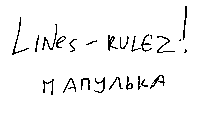 LINes - RULEZ!
МАПУЛЬКА